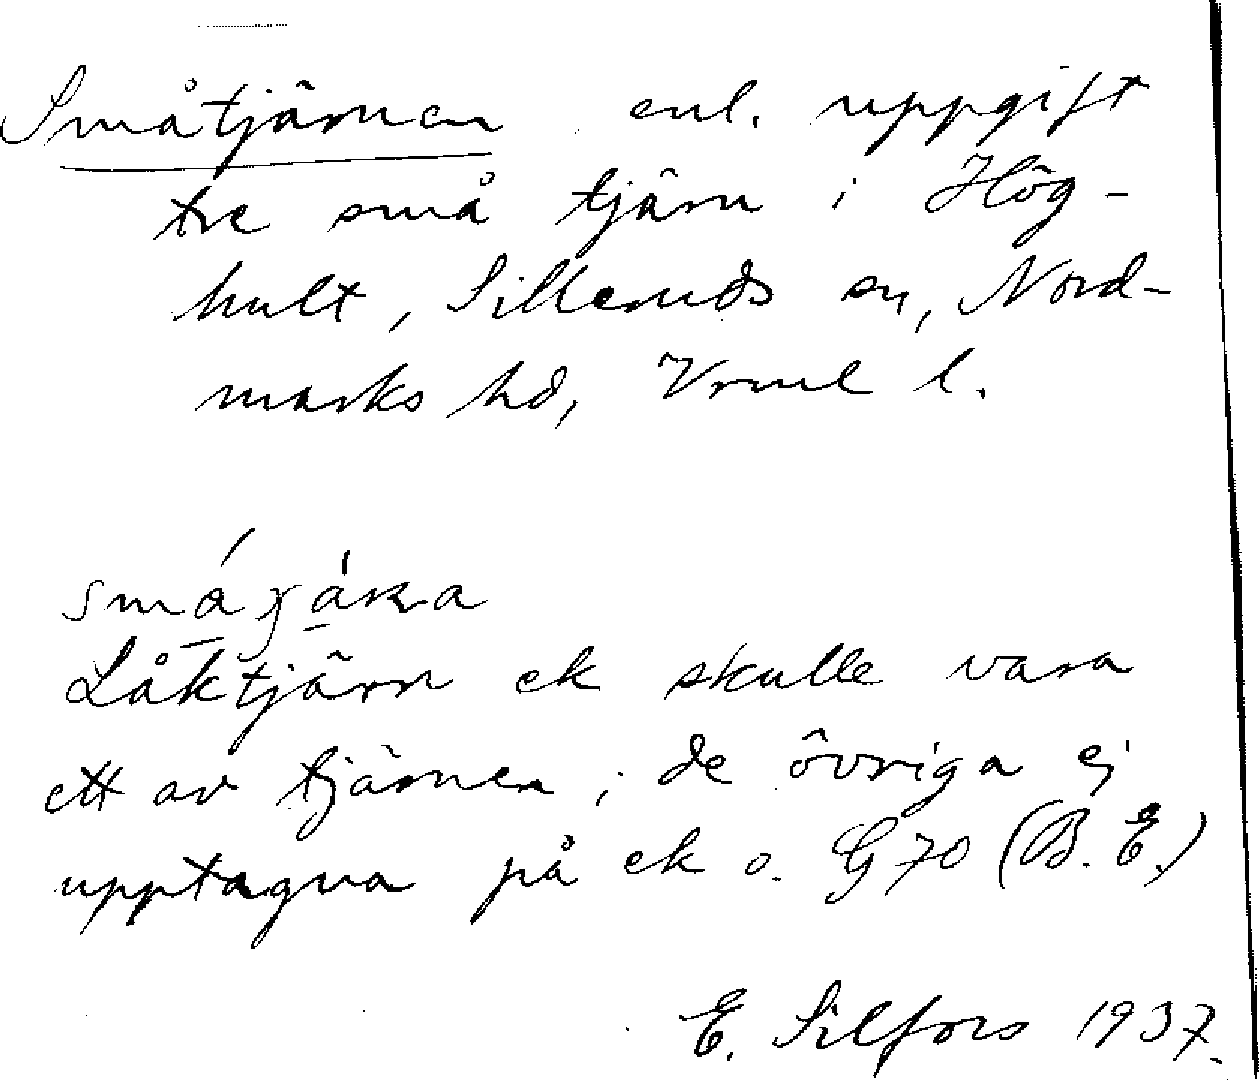 Småtjärnen enl. uppgift
tre små tjärn i Hög-
hult, Silleruds sn, Nord-
marks hd, Vrml l.
Låktjärn ek skulle vara
ett av tjärnen; de övriga ej
upptagna på ek o. G 70 (B. E.)
E. Silfors 1937.